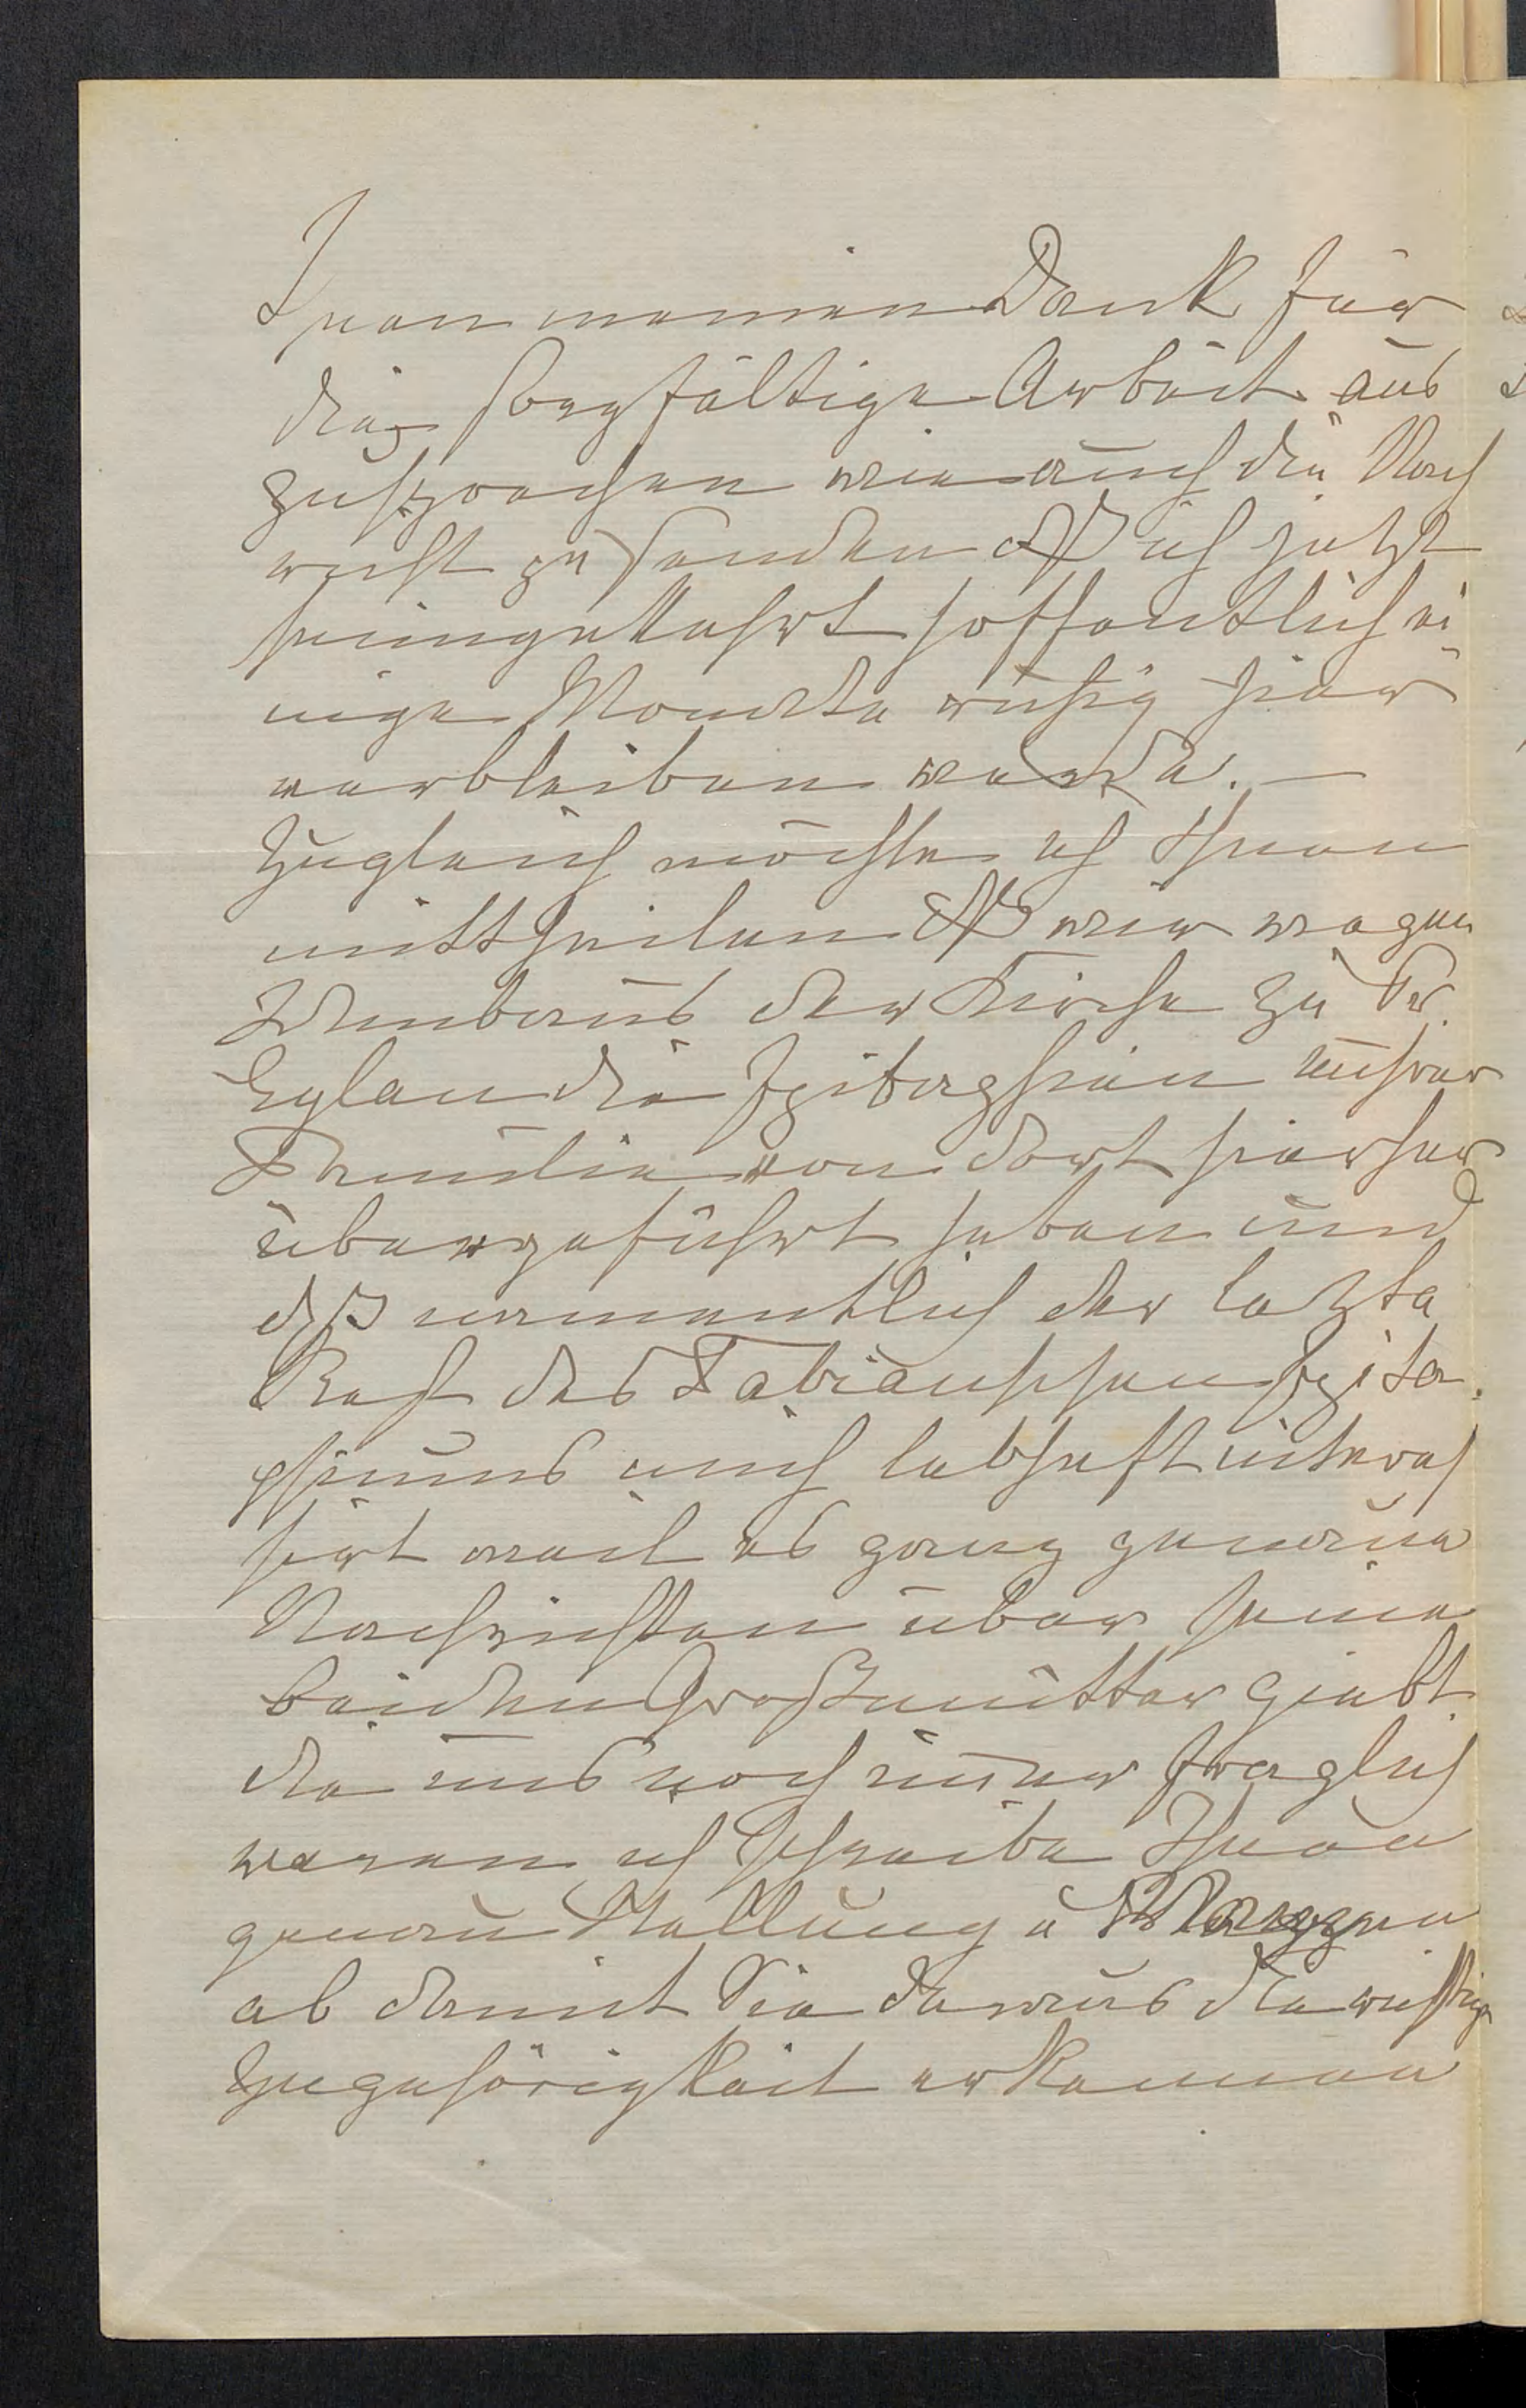 Ihnen meinen Dank für
die sorgfältige Arbeit aus
zusprechen wie auch die Nach
richt zu senden daß ich jetzt
heimgekehrt hoffentlich ei
nige Monate ruhig hier
verbleiben werde. —
Zugleich möchte ich Ihnen
mittheilen daß wir wegen
Umbaus der Kirche zu Pr.
Eylau die Epitaphien unsrer
Familie von dort hierher
übergeführt haben und
daß namentlich der letzte
Rest des Fabianschen Epita
phiums mich lebhaft interes
sirt weil es ganz genaue
Nachrichten über seine
beiden Großmütter giebt
die uns noch immer fraglich
waren ich schreibe Ihnen
genau Stellung u Wappen
ab damit Sie daraus die richtige
Zugehörigkeit erkennen